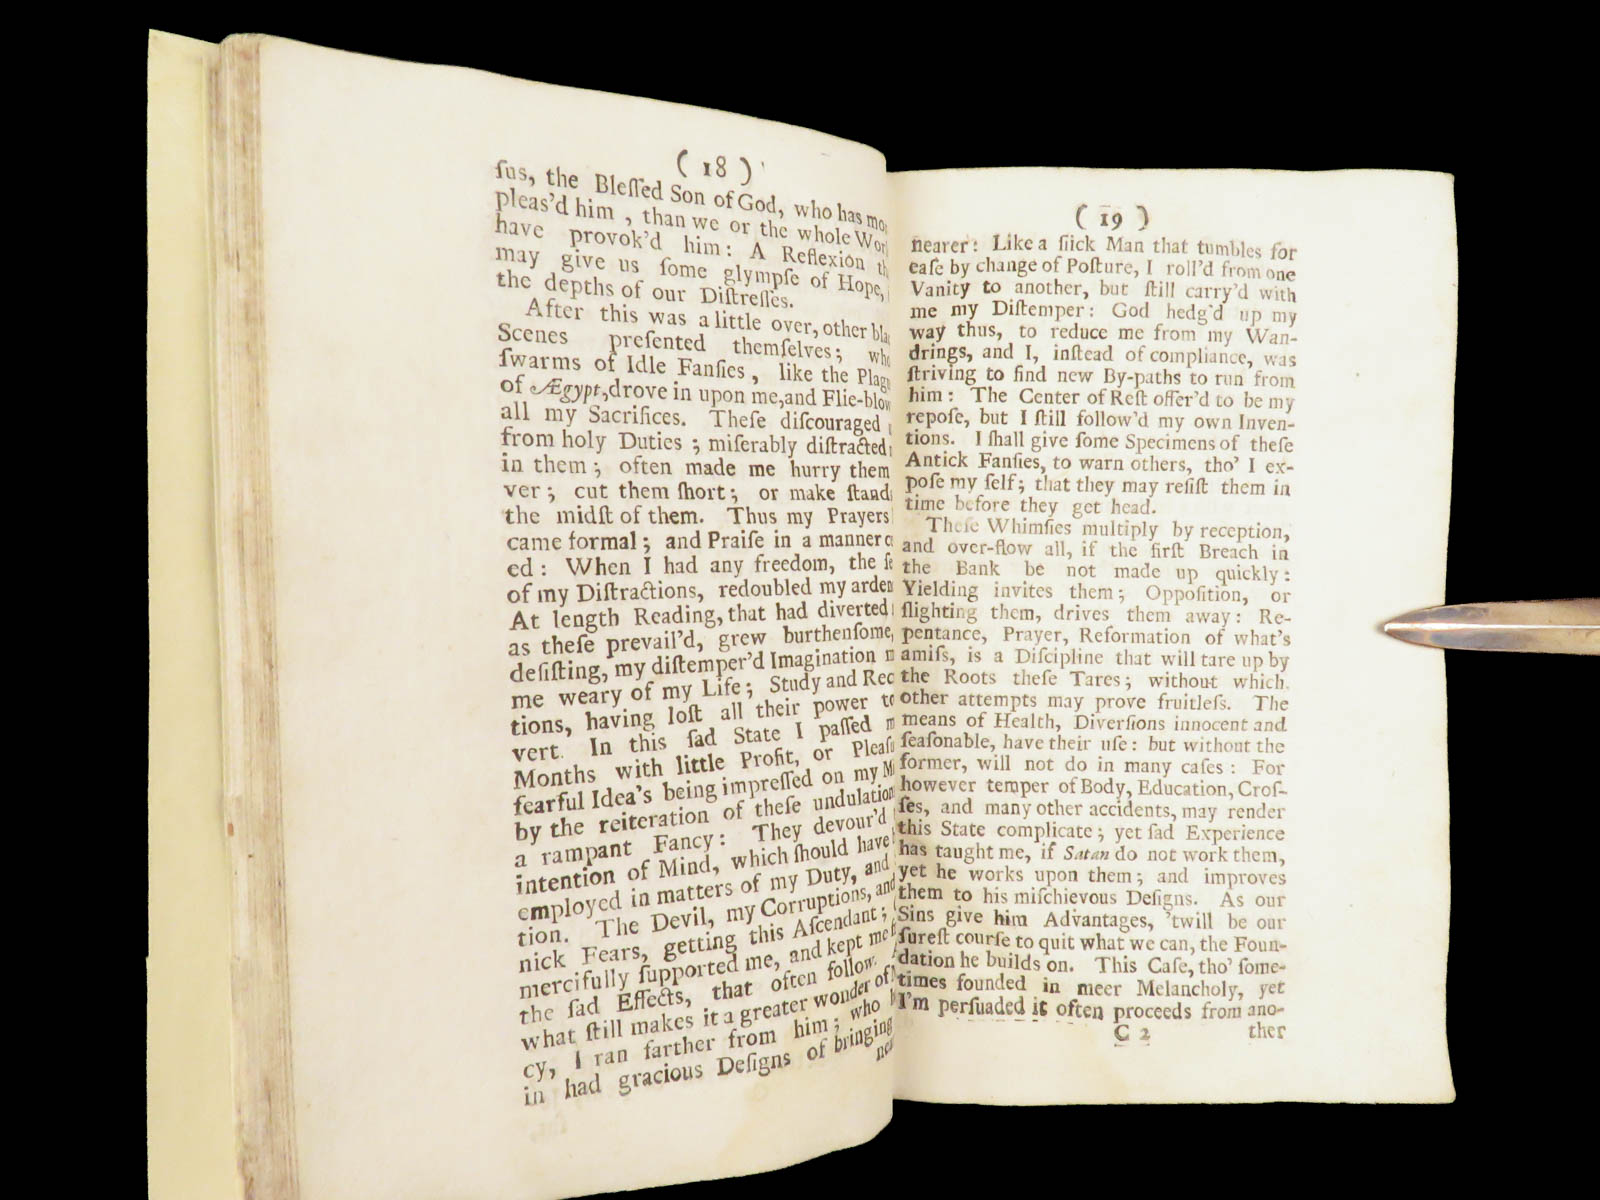 ( 18 )
ſus, the Bleſſed Son of God, who has mo
pleas'd him , than we or the whole Worl
have provok'd him: A Reflexion th
may give us ſome glympſe of Hope,
the depths of our Diſtreſſes.
After this was a little over, other bla
Scenes preſented themſelves; who
ſwarms of Idle Fanſies , like the Plag
of Ægypt, drove in upon me,and Flie-blow
all my Sacrifices. Theſe diſcouraged
from holy Duties ; miſerably diſtracted
in them ; often made me hurry them
ver ; cut them ſhort ; or make ſtand
the midſt of them. Thus my Prayers
came formal ; and Praiſe in a manner
ed : When I had any freedom, the ſe
of my Diſtractions, redoubled my arden
At length Reading, that had diverted
as theſe prevail'd, grew burthenſome,
deſiſting, my diſtemper'd Imagination m
me weary of my Life ; Study and Rec
tions, having loſt all their power to
vert. In this ſad State I paſſed m
Months with little Profit, or Pleaſu
fearful Idea's being impreſſed on my Mi
by the reiteration of theſe undulation
a rampant Fancy : They devour'd
intention of Mind, which ſhould have
employed in matters of my Duty, and
tion. The Devil, my Corruptions, and
nick Fears, getting this Aſcendant ;
mercifully ſupported me, and kept me
the ſad Effects, that often follow.
what ſtill makes it a greater wonder of
cy, I ran farther from him ; who
in had gracious Deſigns of bringing
nea
( 19 )
nearer : Like a ſiick Man that tumbles for
eaſe by change of Poſture, I roll'd from one
Vanity to another, but ſtill carry'd with
me my Diſtemper : God hedg'd up my
way thus, to reduce me from my Wan-
drings, and I, inſtead of compliance, was
ſtriving to find new By-paths to run from
him : The Center of Reſt offer'd to be my
repoſe, but I ſtill follow'd my own Inven-
tions. I ſhall give ſome Specimens of theſe
Antick Fanſies, to warn others, tho' I ex-
poſe my ſelf ; that they may reſiſt them in
time before they get head.
Theſe Whimſies multiply by reception,
and over-flow all, if the firſt Breach in
the Bank be not made up quickly :
Yielding invites them ; Oppoſition, or
ſlighting them, drives them away : Re-
pentance, Prayer, Reformation of what's
amiſs, is a Diſcipline that will tare up by
the Roots theſe Tares ; without which
other attempts may prove fruitleſs. The
means of Health, Diverſions innocent and
ſeaſonable, have their uſe : but without the
former, will not do in many caſes : For
however temper of Body, Education, Croſ-
ſes, and many other accidents, may render
this State complicate ; yet ſad Experience
has taught me, if Satan do not work them,
yet he works upon them ; and improves
them to his miſchievous Deſigns. As our
Sins give him Advantages, 'twill be our
ſureſt courſe to quit what we can, the Foun-
dation he builds on. This Caſe, tho' ſome-
times founded in meer Melancholy, yet
I'm perſuaded it often proceeds from ano-
C 2 ther